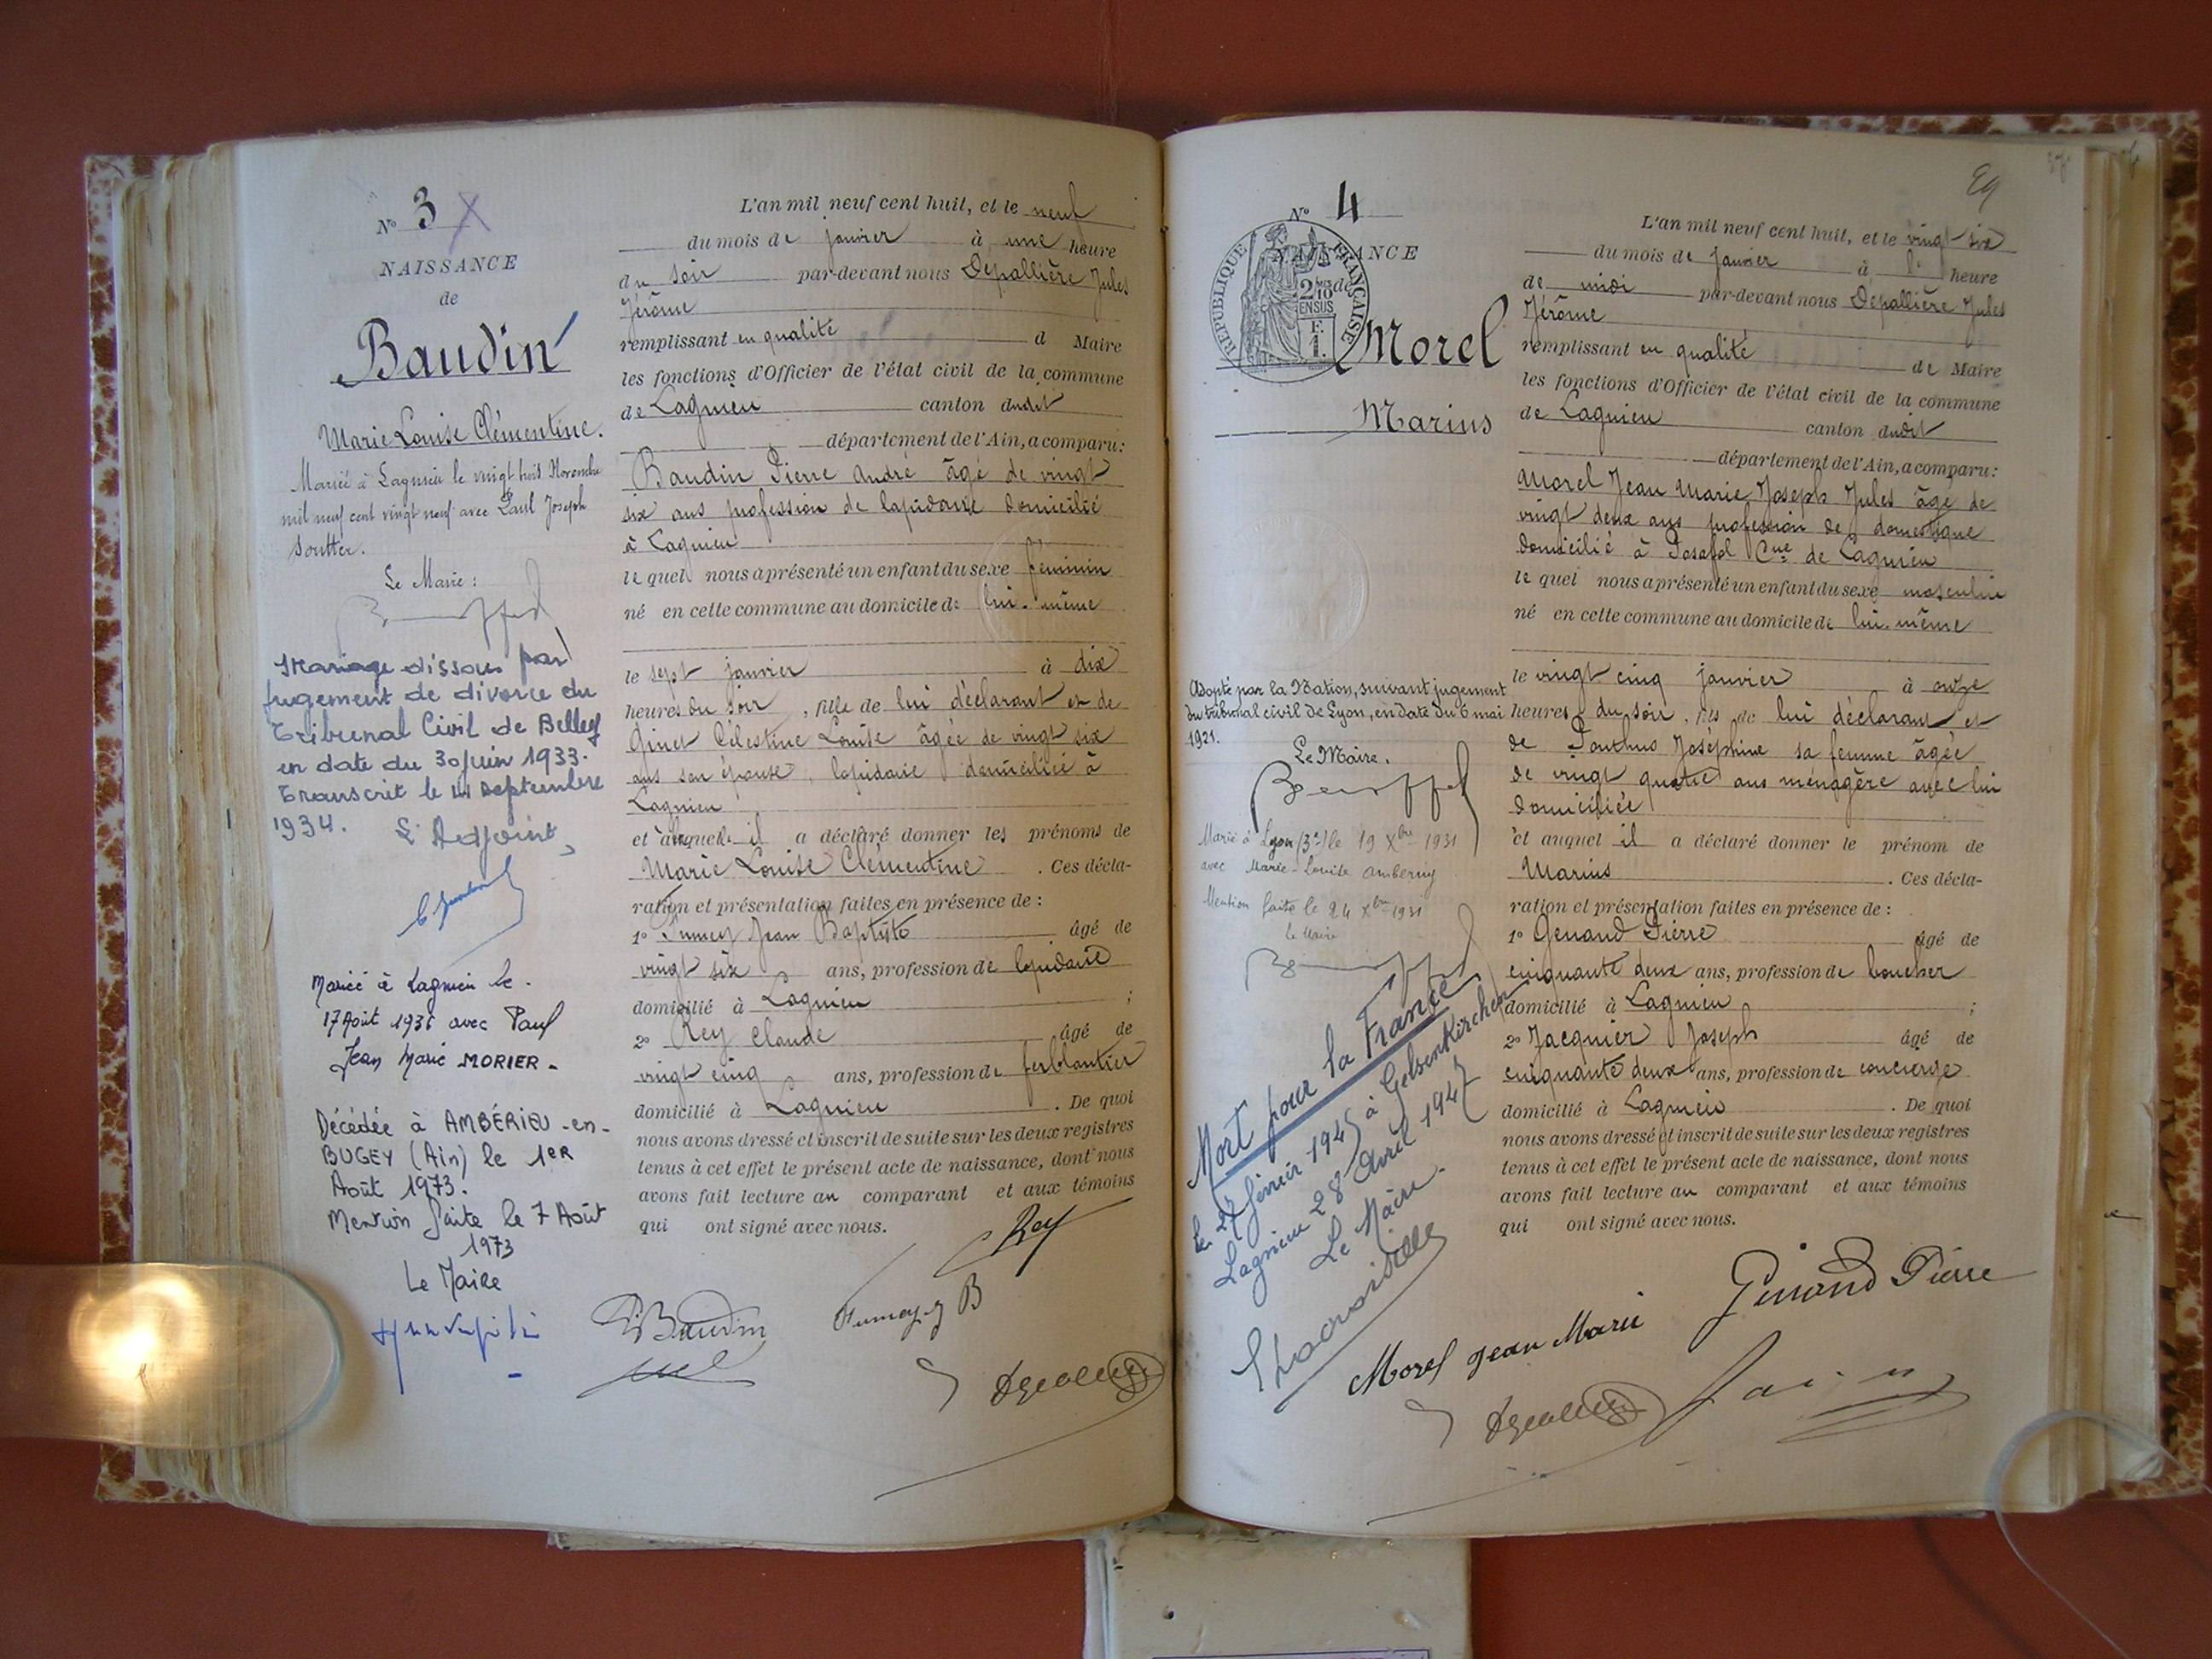 N° 3 X
NAISSANCE
de
Baudin
Marie Louise Clémentine.
Mariée à Lagnieu le vingt trois Novembre
mil neuf cent vingt neuf avec Paul Joseph
Soutter.
Le Maire :
Mariage dissous par
jugement de divorce du
Tribunal Civil de Belley
en date du 30 juin 1933.
Transcrit le 14 septembre
1934.
L'Adjoint,
Mariée à Lagnieu le
17 Août 1936 avec Paul
Jean Marie MORIER -
Décédée à AMBÉRIEU-en-
BUGEY (Ain) le 1ER
Août 1973.
Mention faite le 7 Août
1973
Le Maire
L'an mil neuf cent huit, et le neuf
du mois de janvier à une heure
du soir par-devant nous Depallière Jules
Jérôme
remplissant en qualité d Maire
les fonctions d'Officier de l'état civil de la commune
de Lagnieu canton dudit
département de l'Ain, a comparu :
Baudin Pierre André âgé de vingt
six ans profession de lapidaire domicilié
à Lagnieu
le quel nous a présenté un enfant du sexe féminin
né en cette commune au domicile de lui-même
le sept janvier à dix
heures du soir, fille de lui déclarant et de
Ginet Célestine Louise âgée de vingt six
ans son épouse, lapidaire domiciliée à
Lagnieu
et à laquelle il a déclaré donner les prénoms de
Marie Louise Clémentine . Ces décla-
ration et présentation faites en présence de :
1° Fumey Jean Baptiste âgé de
vingt six ans, profession de lapidaire
domicilié à Lagnieu ;
2° Rey Claude âgé de
vingt cinq ans, profession de ferblantier
domicilié à Lagnieu . De quoi
nous avons dressé et inscrit de suite sur les deux registres
tenus à cet effet le présent acte de naissance, dont nous
avons fait lecture au comparant et aux témoins
qui ont signé avec nous.
Rey
P. Baudin
Fumey J B
N° 4
NAISSANCE
de
RÉPUBLIQUE FRANÇAISE
2/10 EN SUS
F.
1.
Morel
Marius
Adopté par la Nation, suivant jugement
du tribunal civil de Lyon, en date du 6 mai
1921.
Le Maire.
Marié à Lyon (3e) le 19 Xbre 1931
avec Marie-Louise Amberny
Mention faite le 24 Xbre 1931
le Maire
Mort pour la France
le 27 février 1945 à Gelsenkirchen
Lagnieu 28 Avril 1947
Le Maire.
59
L'an mil neuf cent huit, et le vingt-six
du mois de janvier à l' heure
de midi par-devant nous Depallière Jules
Jérôme
remplissant en qualité de Maire
les fonctions d'Officier de l'état civil de la commune
de Lagnieu canton dudit
département de l'Ain, a comparu :
Morel Jean Marie Joseph Jules âgé de
vingt deux ans profession de domestique
domicilié à Posafol Cne de Lagnieu
le quel nous a présenté un enfant du sexe masculin
né en cette commune au domicile de lui-même
le vingt cinq janvier à onze
heures du soir, fils de lui déclarant et
de Ponthus Joséphine sa femme âgée
de vingt quatre ans ménagère avec lui
domiciliée
et auquel il a déclaré donner le prénom de
Marius . Ces décla-
ration et présentation faites en présence de :
1° Genand Pierre âgé de
cinquante deux ans, profession de boucher
domicilié à Lagnieu ;
2° Jacquier Joseph âgé de
cinquante deux ans, profession de concierge
domicilié à Lagnieu . De quoi
nous avons dressé et inscrit de suite sur les deux registres
tenus à cet effet le présent acte de naissance, dont nous
avons fait lecture au comparant et aux témoins
qui ont signé avec nous.
Genand Pierre
Morel Jean Marie